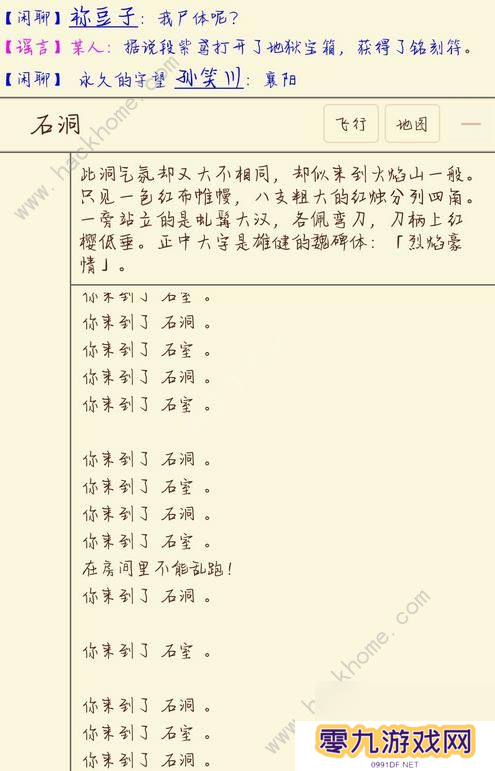 【闲聊】祢豆子：我尸体呢？
【谣言】某人：据说段紫鸾打开了地狱宝箱，获得了铭刻符。
【闲聊】永久的守望 孙笑川：襄阳
石洞
飞行
地图
此洞气氛却又大不相同，却似来到火焰山一般。
只见一色红布帷幔，八支粗大的红烛分列四角。
一旁站立的是虬髯大汉，各佩弯刀，刀柄上红
樱低垂。正中大字是雄健的魏碑体：「烈焰豪
情」。
你来到了 石室 。
你来到了 石洞 。
你来到了 石室 。
你来到了 石洞 。
你来到了 石室 。
你来到了 石洞 。
你来到了 石室 。
你来到了 石洞 。
你来到了 石室 。
在房间里不能乱跑！
你来到了 石洞 。
你来到了 石室 。
你来到了 石洞 。
你来到了 石室 。
你来到了 石洞 。
hackhome.com
hackhome.com
hackhome.com
零九游戏网
0991DF.NET